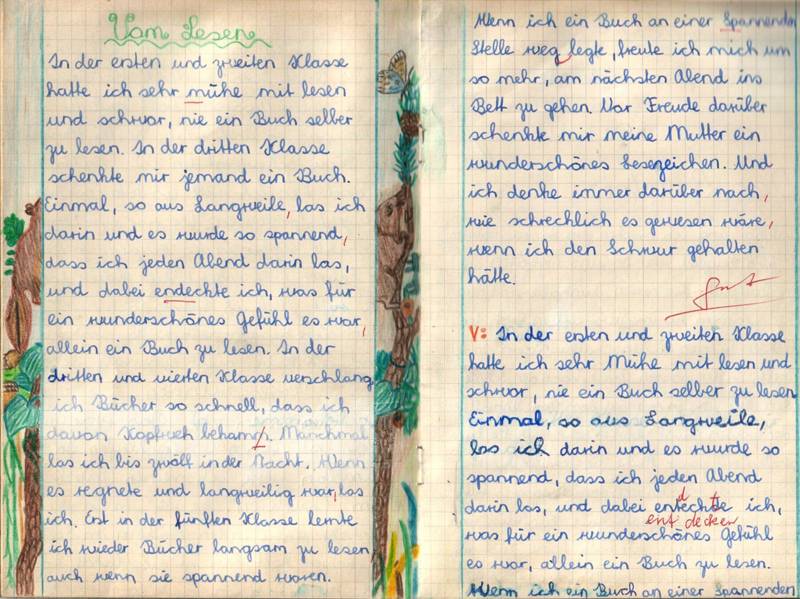 Vom Lesen
In der ersten und zweiten Klasse
hatte ich sehr mühe mit lesen
und schwor, nie ein Buch selber
zu lesen. In der dritten Klasse
schenkte mir jemand ein Buch.
Einmal, so aus Langweile, las ich
darin und es wurde so spannend,
dass ich jeden Abend darin las,
und dabei endechte ich, was für
ein wunderschönes Gefühl es war,
allein ein Buch zu lesen. In der
dritten und vierten Klasse verschlang
ich Bücher so schnell, dass ich
davon Kopfweh bekam. Manchmal
las ich bis zwölf in der Nacht. Wenn
es regnete und langweilig war, las
ich. Erst in der fünften Klasse lernte
ich wieder Bücher langsam zu lesen
auch wenn sie spannend waren.
Wenn ich ein Buch an einer Spannenden
Stelle weg legte, freute ich mich um
so mehr, am nächsten Abend ins
Bett zu gehen. Vor Freude darüber
schenkte mir meine Mutter ein
wunderschönes besezeichen. Und
ich denke immer darüber nach,
wie schrecklich es gewesen wäre,
wenn ich den Schwur gehalten
hätte.
Gut
V: In der ersten und zweiten Klasse
hatte ich sehr Mühe mit lesen und
schwor, nie ein Buch selber zu lesen
Einmal, so aus Langweile,
las ich darin und es wurde so
spannend, dass ich jeden Abend
darin las, und dabei entdeckte ich,
entdecken
was für ein wunderschönes Gefühl
es war, allein ein Buch zu lesen.
Wenn ich ein Buch an einer Spannenden